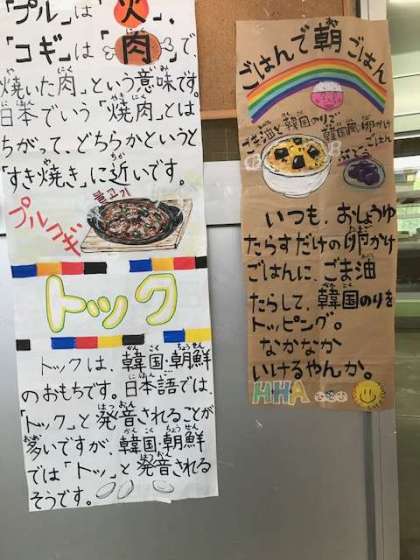 「プル」は「火」、
「コギ」は「肉」で
「焼いた肉」という意味です。
日本でいう「焼肉」とは
ちがって、どちらかというと
「すき焼き」に近いです。
불고기
プルコギ
トック
トックは、韓国・朝鮮
のおもちです。日本語では、
「トック」と発音されることが
多いですが、韓国・朝鮮
では「トッ」と発音される
そうです。
ごはんで朝ごはん
ごま油と韓国のりで
韓国風卵かけ
ごはん
ぶどう
いつも、おしょうゆ
たらすだけの卵かけ
ごはんに、ごま油
たらして、韓国のりを
トッピング。
なかなか
いけるやんか。
HHA